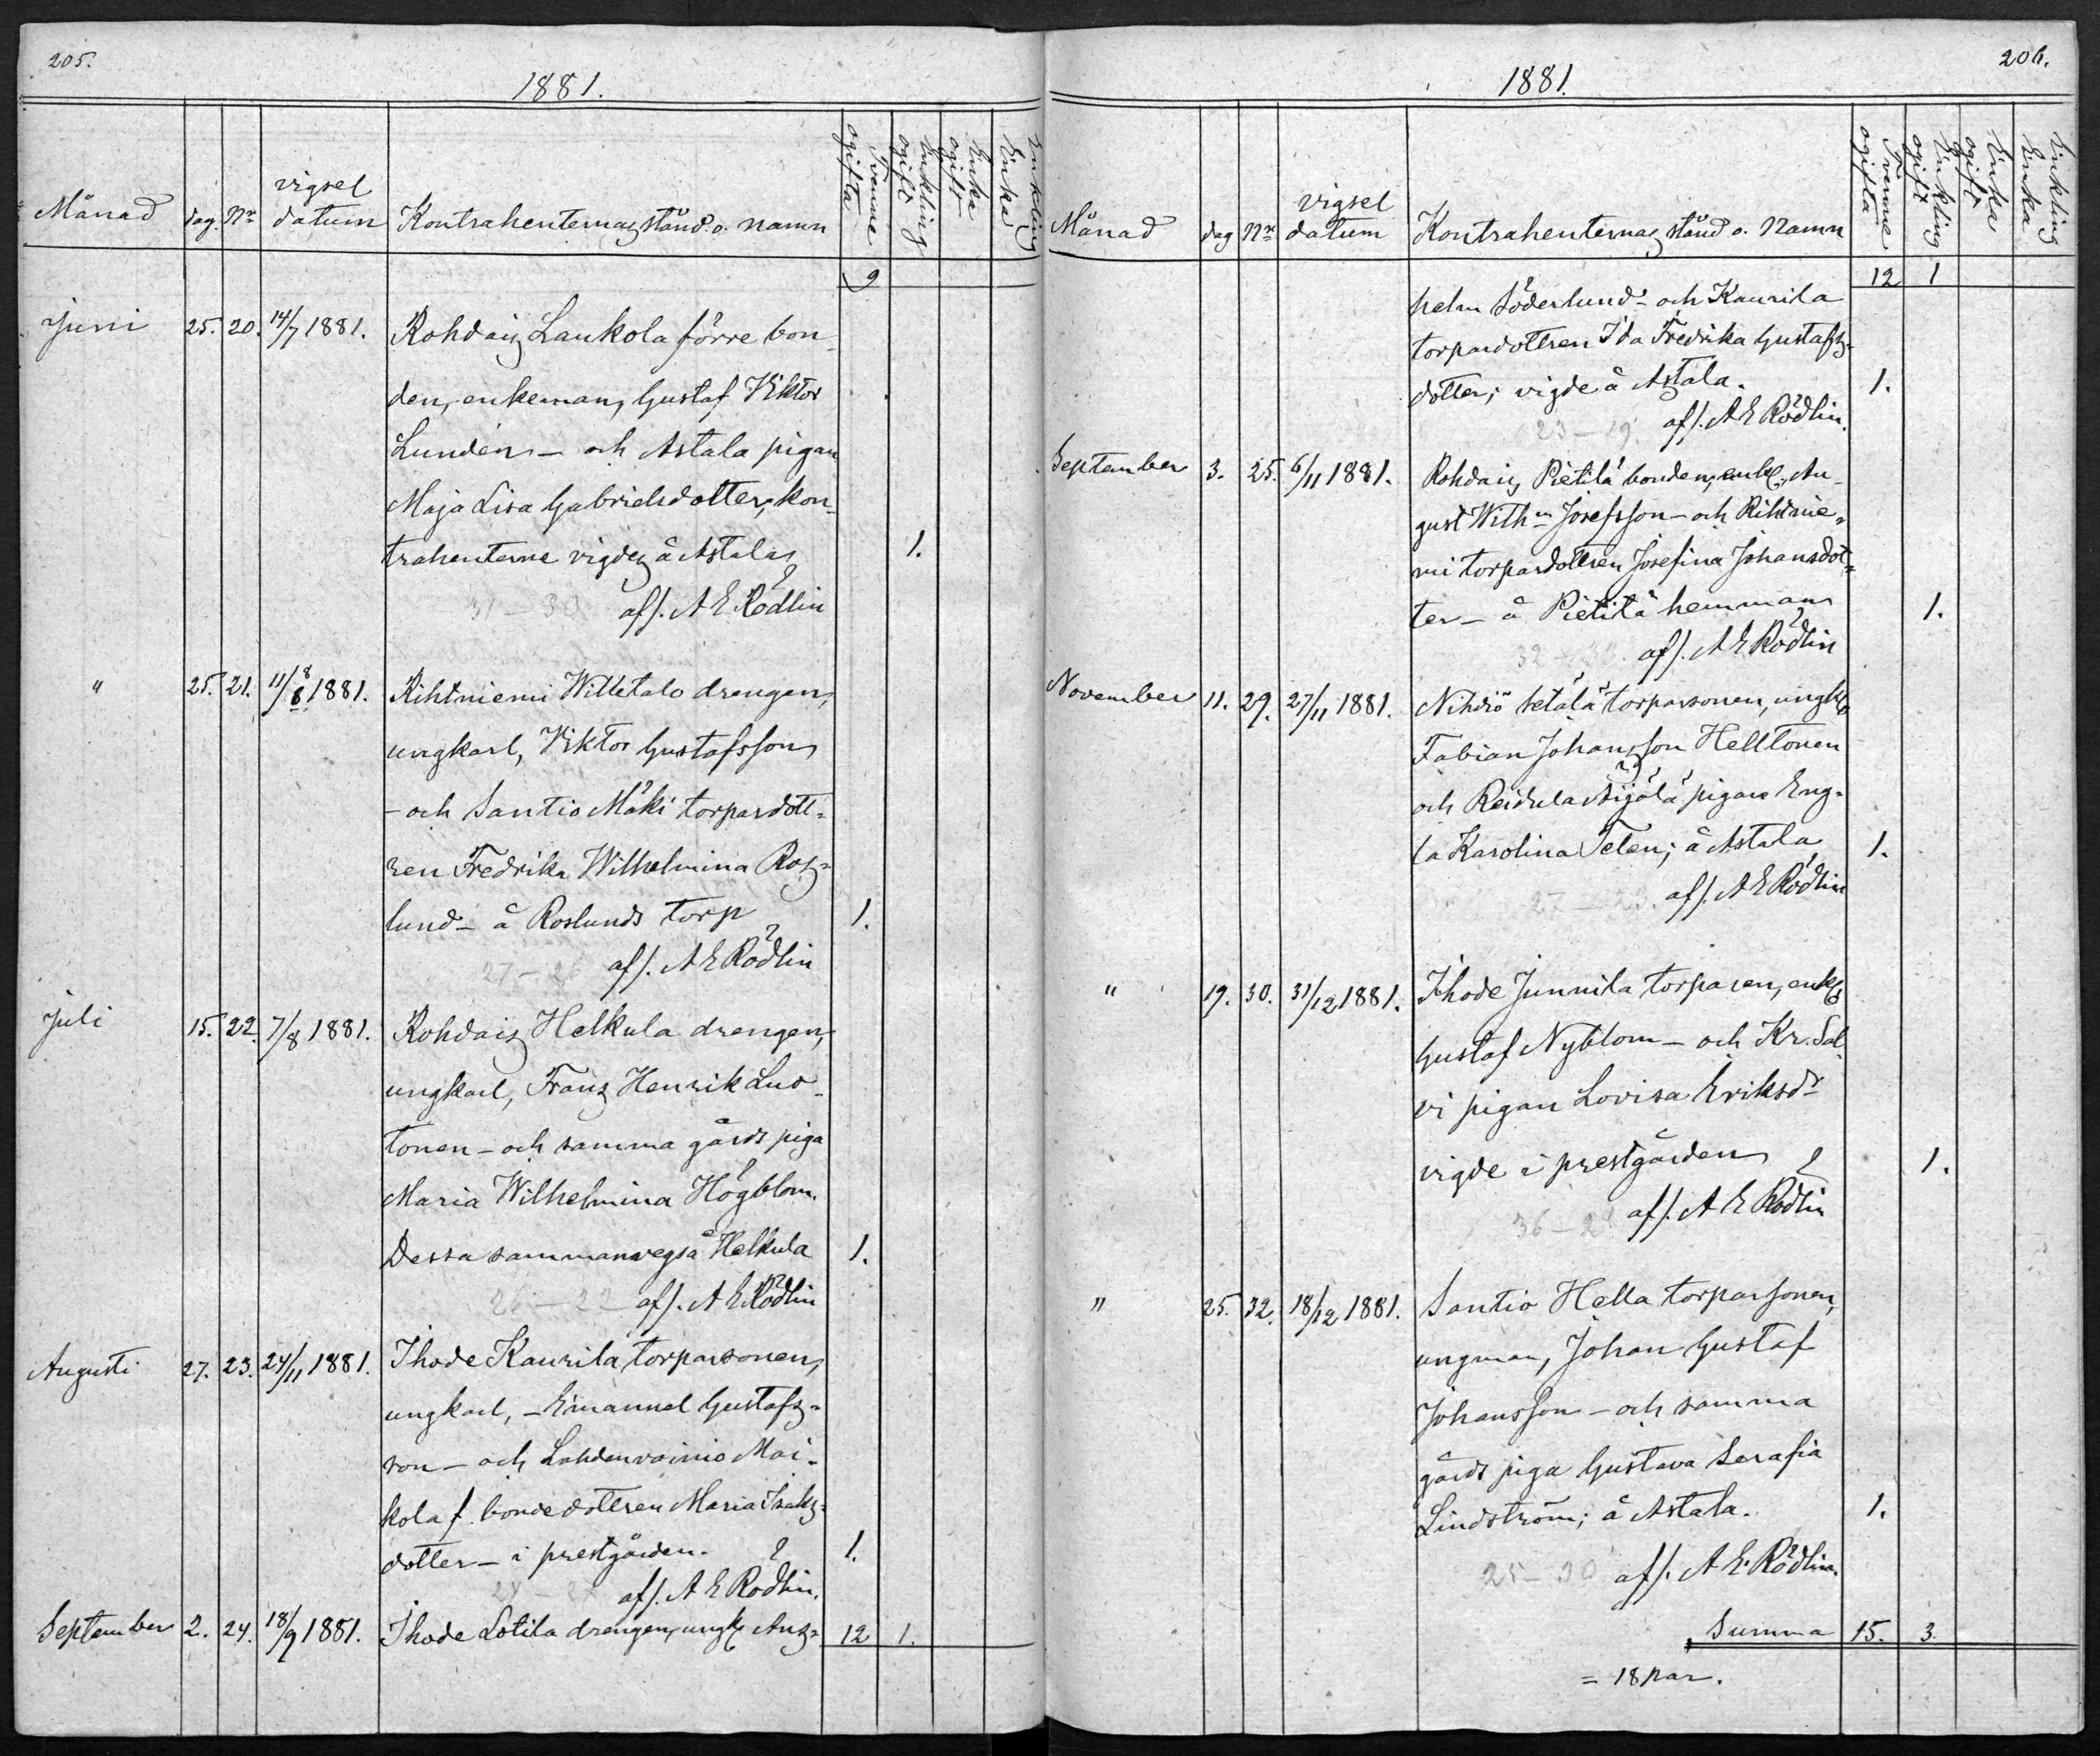 205.
1881.
Månad dag. Nr vigsel datum Kontrahenternas stånd o. namn Tvenne ogifta Enkling ogift Enka ogift Enkling Enka
9
Juni 25. 20. 14/7 1881. Rohdais Laukola förre bon-
den, enkeman, Gustaf Viktor
Lundén - och Astala pigan
Maja Lisa Gabrielsdotter, kon-
trahenterne vigdes å Astala 1.
31 - 30 af/. A E Rödlin
" 25. 21. 11/8 1881. Rihtniemi Willetalo drengen,
ungkarl, Viktor Gustafsson
- och Santio Mäki torpardott-
ren Fredrika Wilhelmina Ros-
lund - å Roslunds torp 1.
27 - 26 af/. A E Rödlin
Juli 15. 22. 7/8 1881. Rohdais Helkula drengen,
ungkarl, Frans Henrik Luo-
tonen - och samma gårds piga
Maria Wilhelmina Högblom.
Dessa sammanvegs å Helkula 1.
26 - 22 af/. A E Rödlin
Augusti 27. 23. 24/11 1881. Ihode Kaurila torparsonen,
ungkarl, - Emanuel Gustafs-
son - och Lahdenvainio Mai-
kola f. bondedottren Maria Isaks-
dotter - i prestgården. 1.
af/. A E Rödlin.
September 2. 24. 18/9 1881. Ihode Lotila drengen, ungk. Aug- 12 1.
206.
1881.
Månad dag Nr vigsel datum Kontrahenternas stånd o. Namn Tvenne ogifta Enkling ogift Enka ogift Enkling Enka
12 1
helm Söderlund - och Kaurila
torpardottren Ida Fredrika Gustafs-
dotter; vigde å Astala. 1.
23 - 19. af/. A E Rödlin.
September 3. 25. 6/11 1881. Rohdais Pietilä bonden, enkl., Au-
gust Wilhm Josefsson - och Rihtnie-
mi torpardottren Josefina Johansdot-
ter - å Pietilä hemman 1.
af/. A E Rödlin
November 11. 29. 27/11 1881. Nihiö Setälä torparsonen, ungk
Fabian Johansson Helltonen
och Reidula Äijälä pigan Eng-
la Karolina Telen; å Astala 1.
27 - 23. af/. A E Rödlin
" 19. 30. 31/12 1881. Ihode Junnila torparen, enkl
Gustaf Nyblom - och Kr. Sal-
vi pigan Lovisa Eriksdr
vigde i prestgården 1.
af/. A E Rödlin
" 25. 32. 18/12 1881. Santio Hella torparsonen,
ungman, Johan Gustaf
Johansson - och samma
gårds piga Gustava Serafia
Lindström; å Astala. 1.
25 - 30 af/. A E. Rödlin.
Summa 15. 3.
= 18 par.